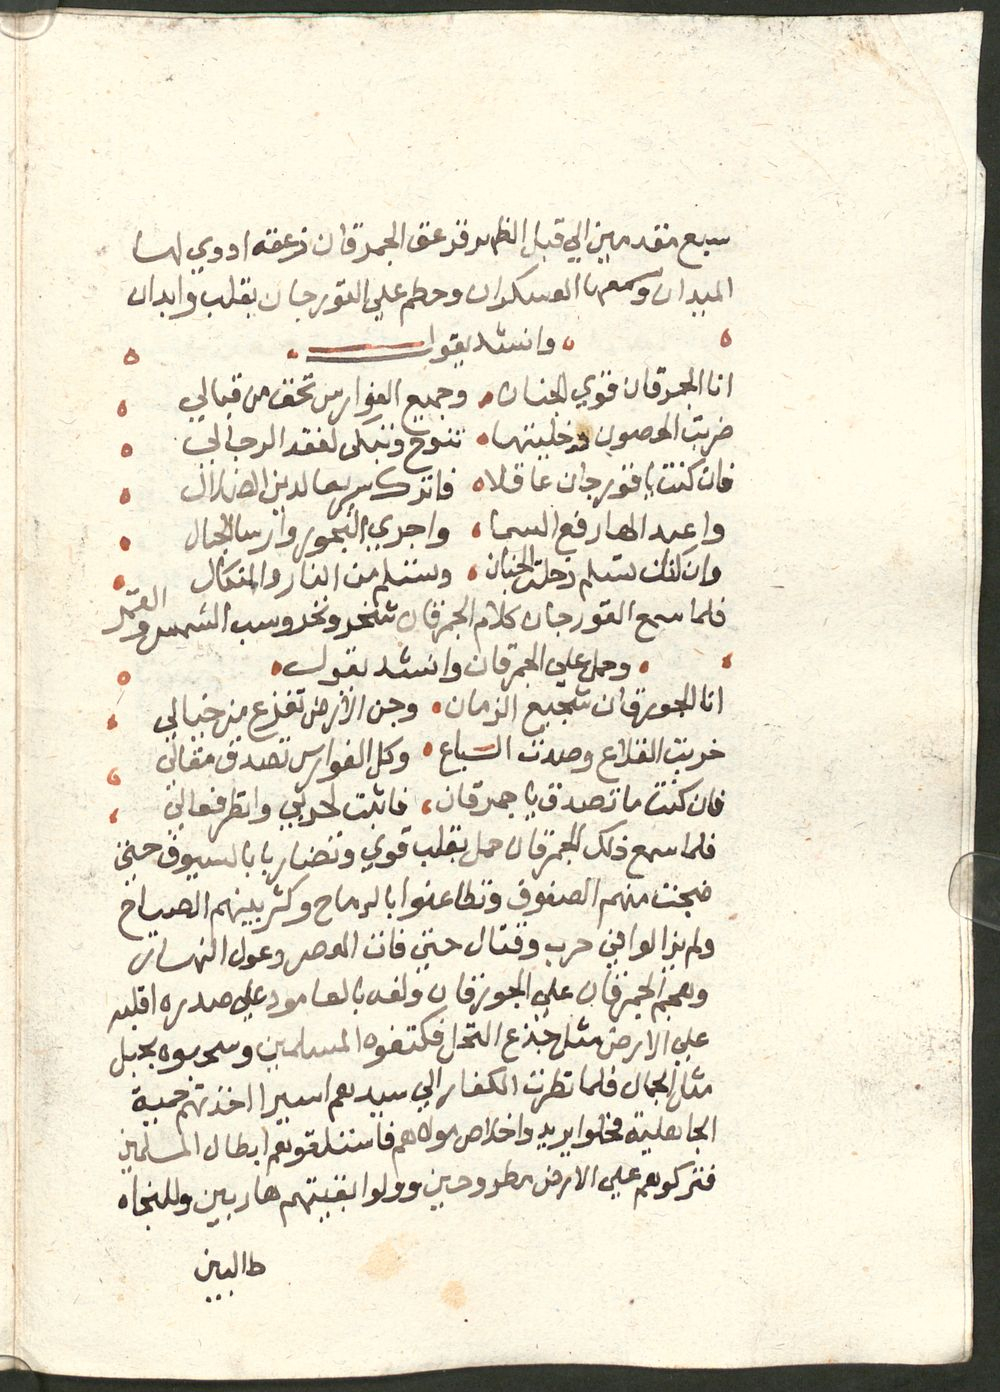 سبع مقدمين الي قبل الظهر فزعق الجمرقان زعقه ادوي لها
الميدان وسمعها العسكران وحطم علي القورجان بقلب وابدان
وانشد يقول
انا الجمرقان قوي الجنان وجميع الفوارس تخف من قبالي
ضربت الحصون وخليتها تنوح وتبكي لفقد الرجالي
فان كنت يا قورجان عاقلاه فاترك سريعا لدين الضلال
واعبد الها رفع السما واجري البحور وارسا الجبال
وان كنت تسلم دخلت الجنان وتسلم من النار والنكال
فلما سمع القورجان كلام الجمرقان شخر ونخر وسب الشمس والقمر
وحمل علي الجمرقان وانشد يقول
انا الجورقان شجيع الزمان وجن الارض تفزع من خيالي
خربت القلاع وصدت السباع وكل الفوارس تصدق مقالي
فان كنت ما تصدق يا جمرقان فاثبت لحربي وانظر فعالي
فلما سمع ذلك الجمرقان حمل بقلب قوي وتضاربا بالسيوف حتي
ضجت منهم الصفوف وتطاعنوا بالرماح وكثر بينهم الصياح
ولم يزالوا في حرب وقتال حتي فات العصر وعول النهار
وهجم الجمرقان علي الجورقان ولفه بالعامود علي صدره اقلبه
علي الارض مثل جذع النخل فكتفوه المسلمين وسحبوه بحبل
مثل الجمال فلما نظرت الكفار الي سيدهم اسيرا اخذتهم حمية
الجاهلية فحملوا يريدوا خلاص مولاهم فاستلقوهم ابطال المسلمين
فتركوهم علي الارض مطروحين وولوا بقيتهم هاربين وللنجاه
طالبين